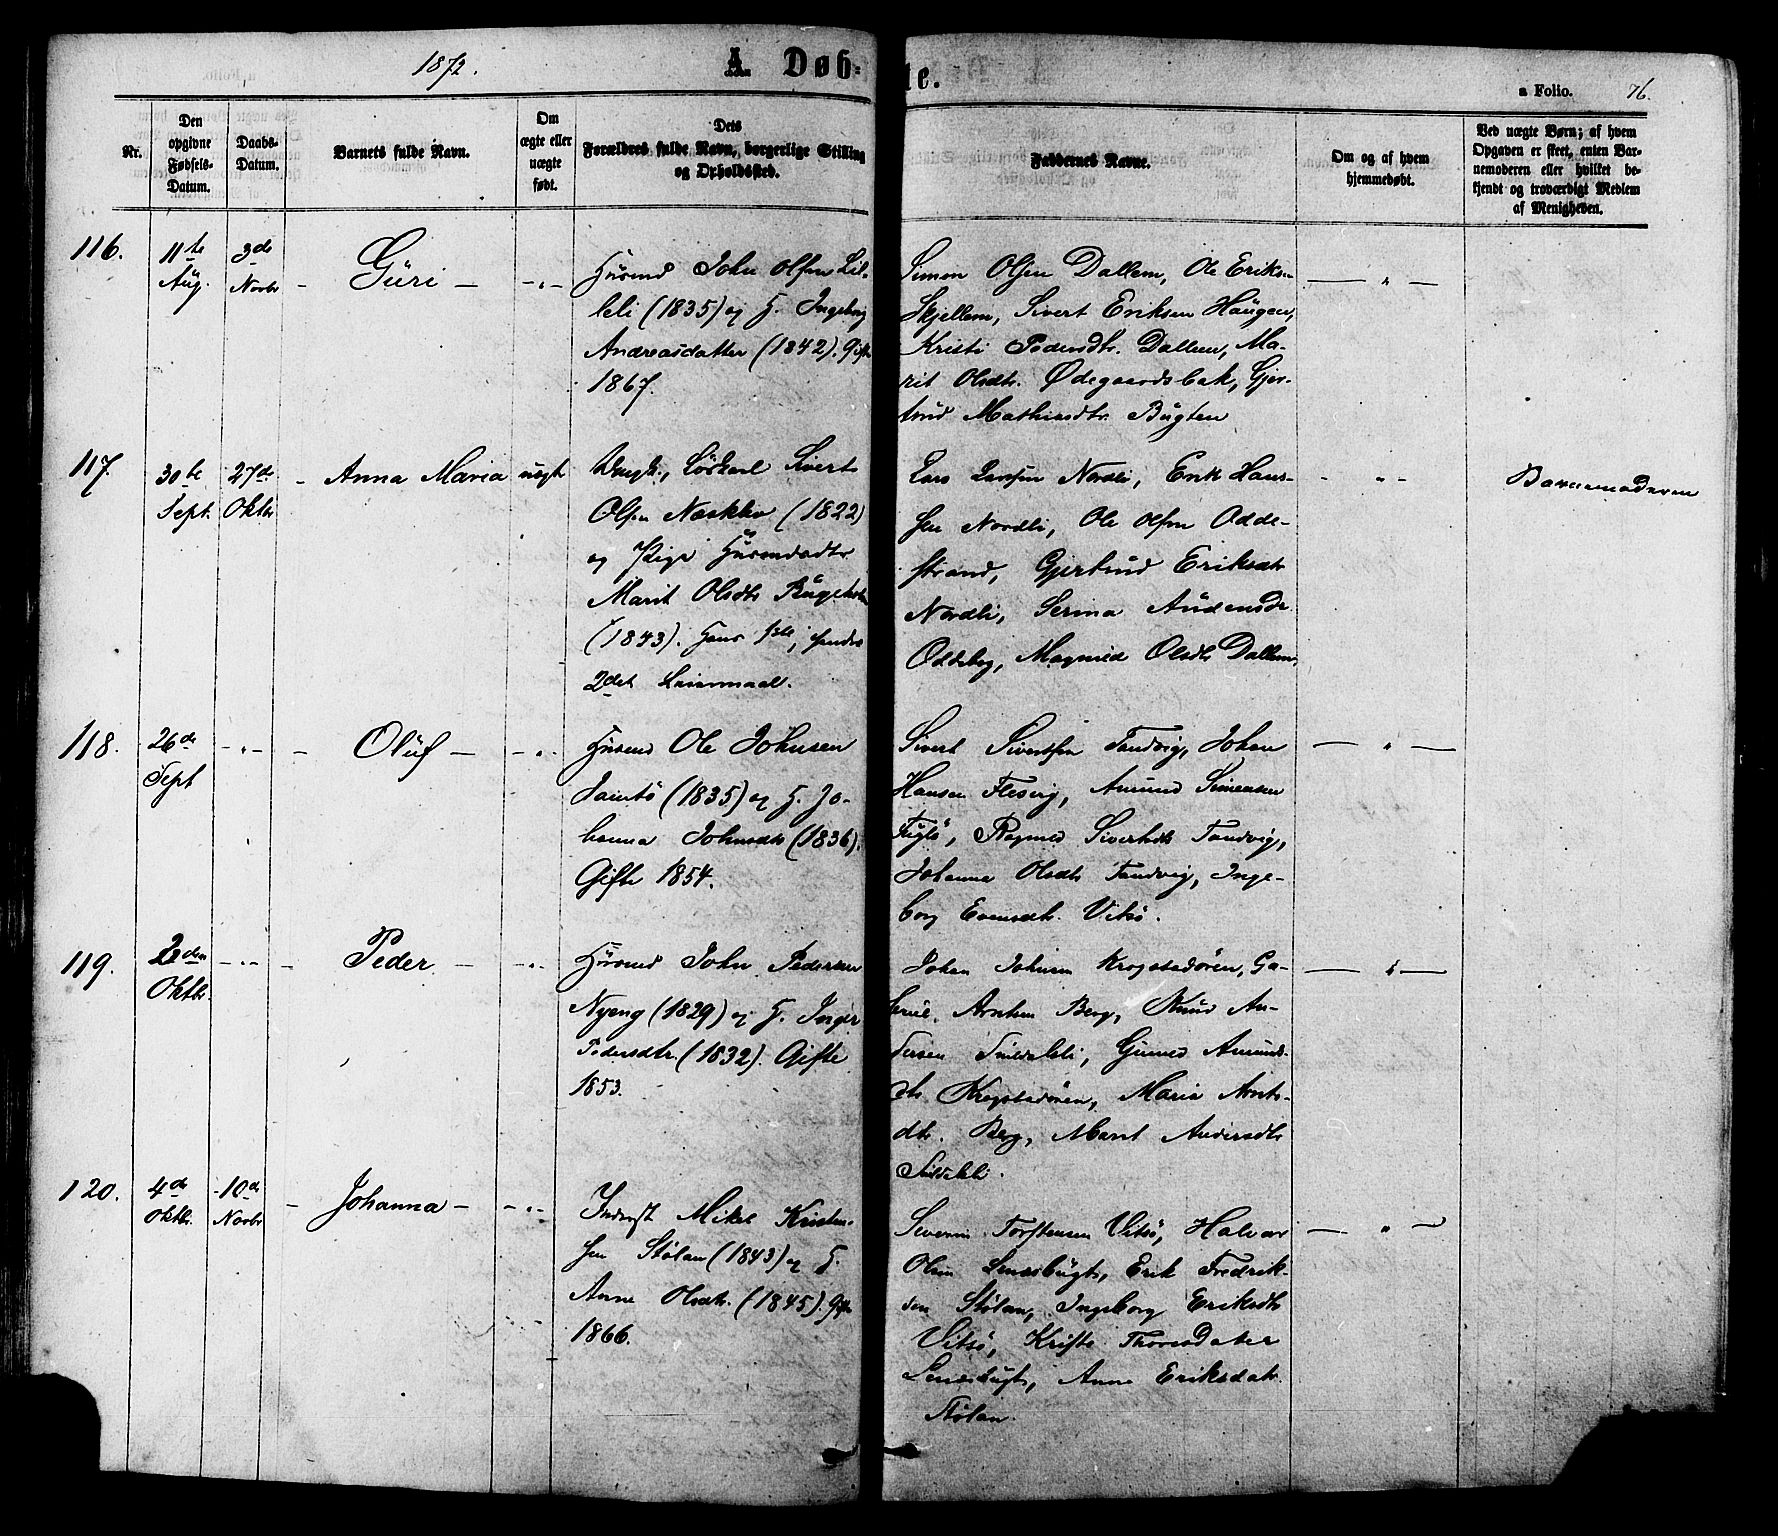 1872.
A Døb-
te.
a Folio.
76.
Nr.
Den
opgivne
Fødsels-
Datum.
Daabs-
Datum.
Barnets fulde Navn.
Om
ægte eller
uægte
født.
Dets
Forældres fulde Navn, borgerlige Stilling
og Opholdssted.
Faddernes Navne.
Om og af hvem
hjemmedøbt.
Ved uægte Børn; af hvem
Opgaven er skeet, enten Bar-
nemoderen eller hvilket be-
kjendt og troværdigt Medlem
af Menigheden.
116.
11te
Aug.
3de
Novbr
Guri
Husmd John Olsen Lil-
leli (1835) og H. Ingeborg
Andreasdatter (1842). Gifte
1867.
Simon Olsen Dallem, Ole Eriksen
Skjellem, Sivert Eriksen Haugen,
Kristi Pedersdtr. Dallem, Ma-
rit Olsdtr. Ødegaardsbak, Gjer-
trud Mathiasdtr Bugten
117.
30te
Sept.
27de
Oktbr
Anna Maria
uægte
Ungk., Løskarl Sivert
Olsen (1822)
og Pige Husmdsdtr
Marit Olsdtr
(1843). Hans 1ste, hendes
2det Leiermaal.
Lars Larsen Nordli, Erik Han-
sen Nordli, Ole Olsen Odde-
strand, Gjertrud Eriksdtr
Nordli, Serina Audensdr
Oddeberg, Magnild Olsdtr Dallem.
Barnemoderen
118.
26de
Sept
Oluf
Husmd Ole Johnsen
(1835) og H. Jo-
hanna Johnsdtr (1836).
Gifte 1854.
Sivert Sivertsen Tandvig, Johan
Hansen Flesvig, Amund Simensen
Fuglø, Ragnild Sivertsdtr Tandvig,
Johanna Olsdtr Tandvig, Inge-
borg Evensdtr. Vitsø.
119.
2den
Oktbr.
Peder
Husmd John Pedersen
Nyeng (1829) og H. Inger
Pedersdtr. (1832). Gifte
1853.
Johan Johnsen Krogstadøren, Ga-
briel Arntsen Berg, Knud An-
dersen Sildaleli, Gunild Amunds-
dtr Krogstadøren, Maria Arnts-
dtr. Berg, Marit Andersdtr
Sildaleli.
120.
4de
Oktbr.
10de
Novbr
Johanna
Inderst Mikal Kristen-
sen Stølan (1843) og H.
Anne Olsdtr. (1845). Gifte
1866.
Severin Torstensen Vitsø, Halvor
Olsen Lenesbugt, Erik Fredrik-
sen Stølan, Ingeborg Eriksdtr
Vitsø, Kristi Thoresdatter
Lenesbugt, Anne Eriksdatr.
Stølan.